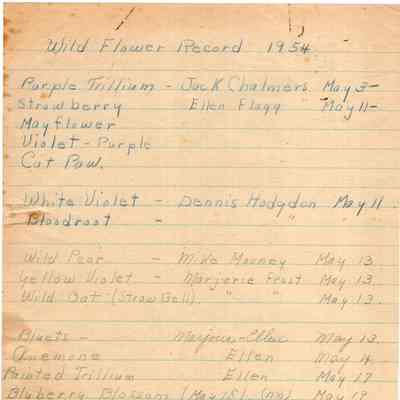 Wild Flower Record 1954
Purple Trillium - Jack Chalmers May 3-
Strawberry Ellen Flagg May 11-
Mayflower
Violet - Purple
Cat Paw.
White Violet - Dennis Hodgdon May 11.
Bloodroot - " "
Wild Pear - Mike Mooney May 13
Yellow Violet - Marjorie Frost May 13.
Wild Oat (Straw Bell). " " May 13.
Bluets - Marjorie-Ellen May 13.
Anemone Ellen May 14.
Painted Trillium Ellen May 17
Bluberry Blossom (May 15) May 19